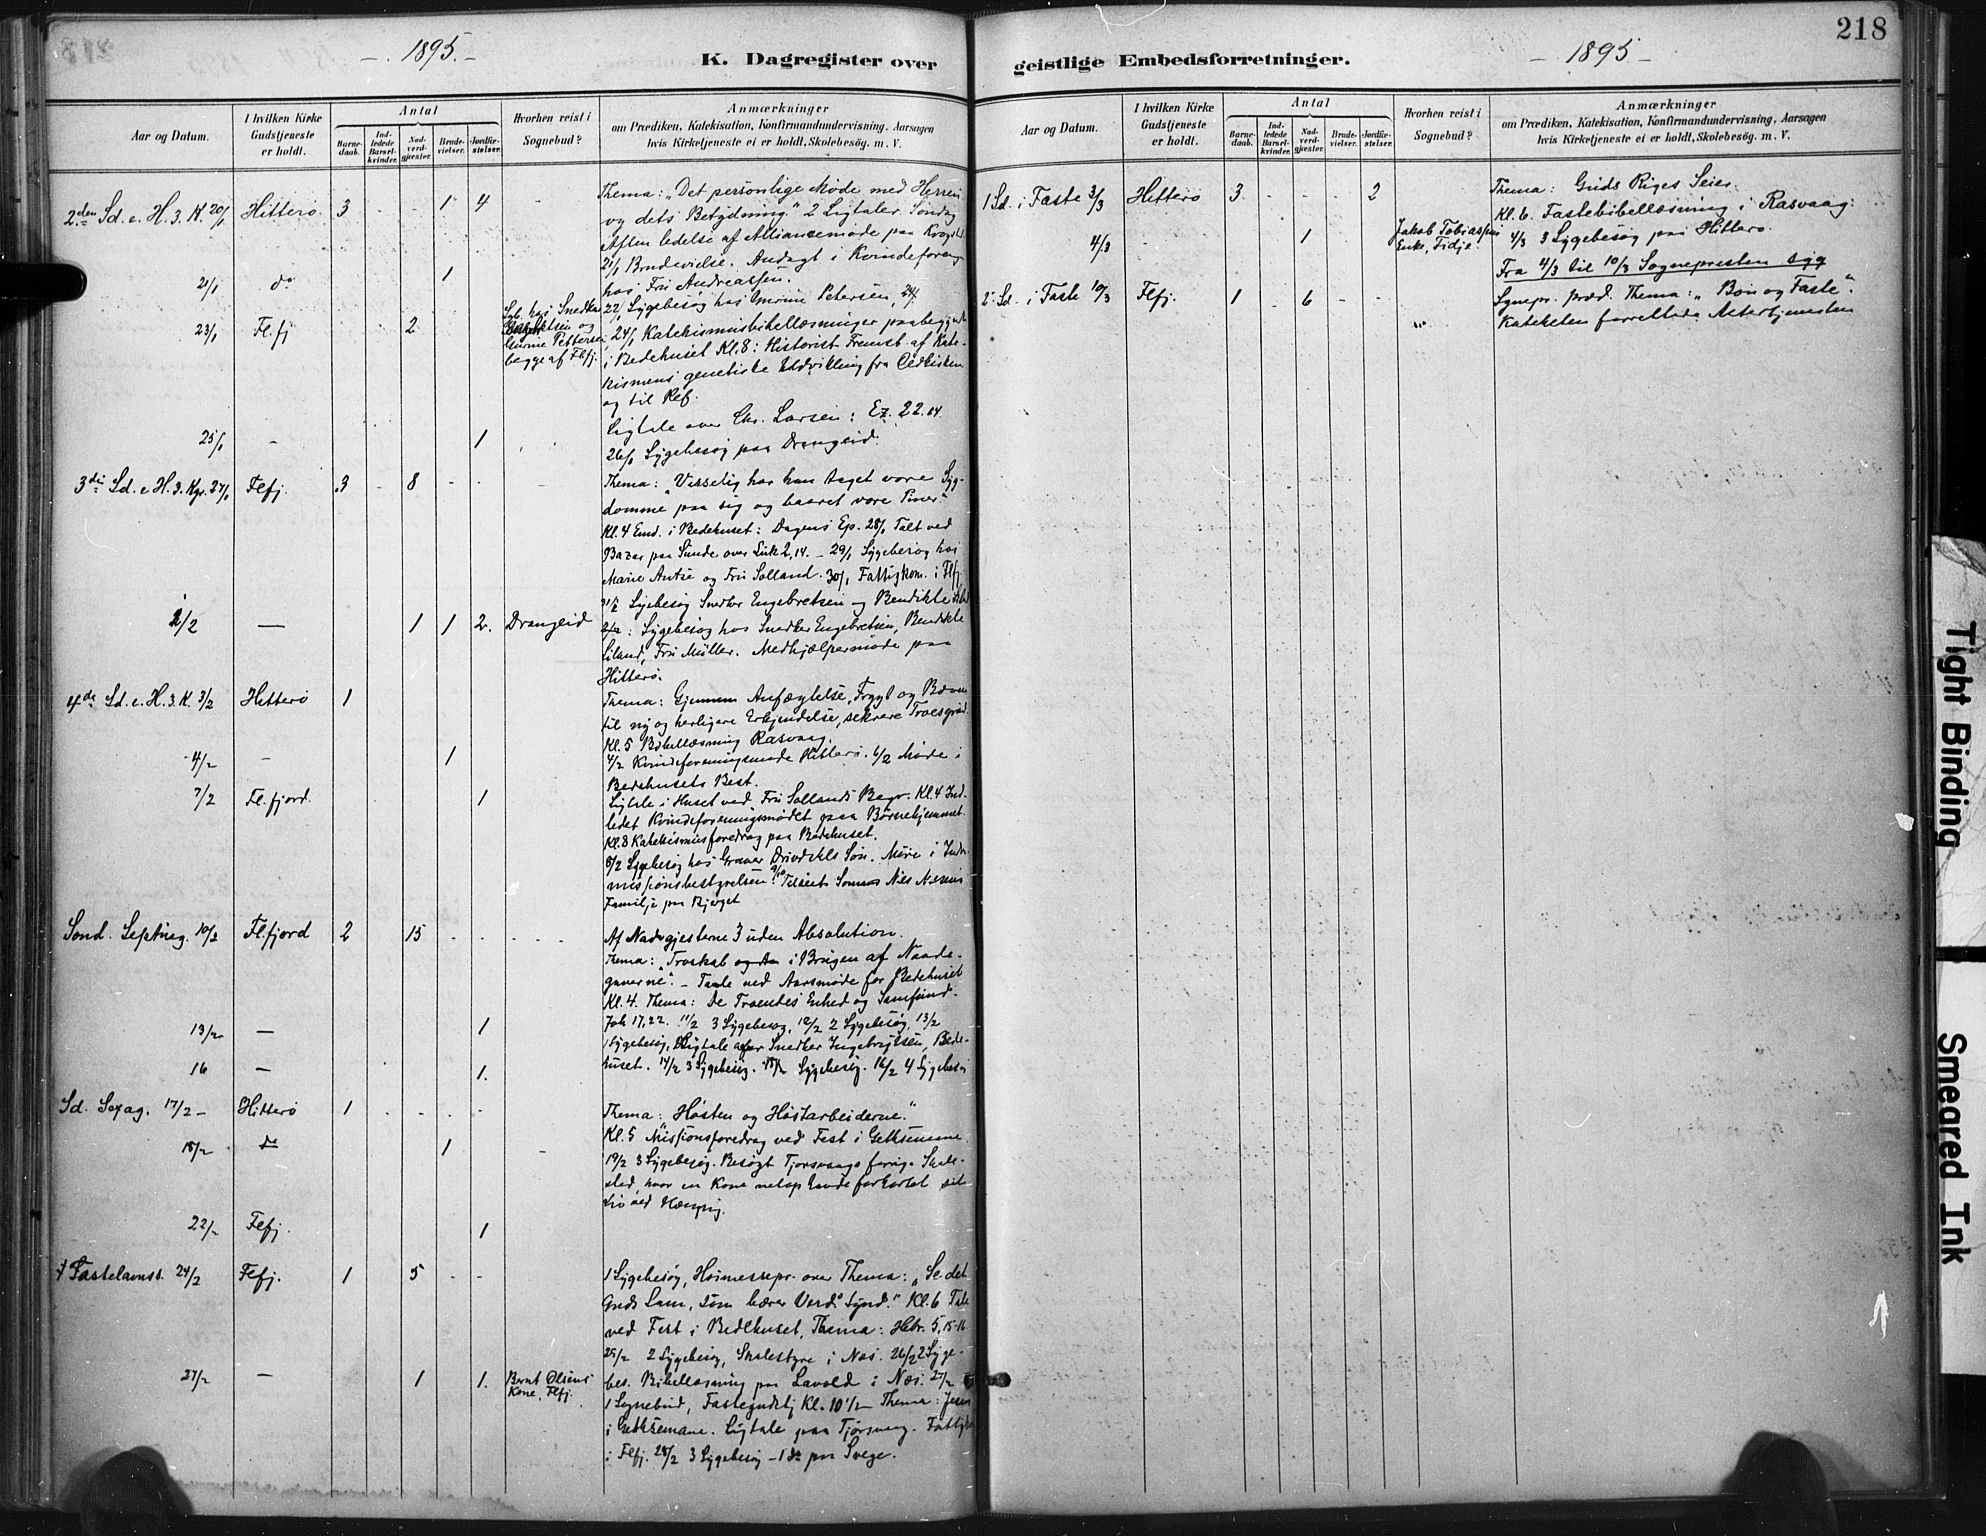 - 1895. -
K. Dagregister over
Aar og Datum.
I hvilken Kirke Gudstjeneste er holdt.
Antal
Barnedaab.
Indledede Barselkvinder.
Nadverdgjester.
Brudevielser.
Jordfæstelser.
Hvorhen reist i Sognebud?
Anmærkninger
om Prædiken, Katekisation, Konfirmandundervisning, Aarsagen
hvis Kirketjeneste ei er holdt, Skolebesøg. m. V.
2den Sd. e. H. 3. K. 20/1 Hitterø 3 - - 1 4 - Thema: "Det personlige Møde med Herren
og dets Betydning." 2 Ligtaler Søndag
Aften ledelse af Alliancemøde paa
21/1 Brudevielse. Andagt i Kvindeforeng
21/1 do 1 hos Fru Andreassen.
22/1 Sygebesøg hos Gurine Petersen, 24/1
23/1 Flfj 2 Syb. hos Snedker og Gurine Pettersen begge af Flfj. 24/1 Katekismusbibellæsninger paabegyndt
i Bedehuset Kl. 8: Historisk Fremst. af Kate-
kismens genetiske Udvikling fra Oldkirken
og til Ref.
25/1 - 1 Ligtale over Chr. Larsen: Ez. 22.14.
26/1 Sygebesøg paa Drangeid.
3die Sd. e. H. 3. Kgr. 27/1 Flfj. 3 - 8 - - Thema: "Visselig har han taget vore Syg-
domme paa sig og baaret vore Piner"
Kl. 4 Emd. i Bedehuset: Dagens Ep. 28/1 Talt ved
Bazar paa Sunde over Luk 2,14. - 29/1 Sygebesøg hos
Marie Antse og Fru Solland. 30/1 Fattigkom. i Flfj
31/1 Sygebesøg Snedker Engebretsen og Bendikte
2/2 - 1 1 2. Drangeid 2/2: Sygebesøg hos Snedker Engebretsen, Bendikte
Liland, Fru Müller. Medhjælpermøde paa
Hitterø.
4de Sd. e. H. 3. K. 3/2 Hitterø 1 Thema: Gjennem Anfægtelse, Frygt og Bæven
til ny og herligere Erkjendelse, sikrere
Kl. 5 Bibellæsning Rasvaag.
4/2 - 1 4/2 Kvindeforeningsmøde Hitterø. 6/2 Møde i
Bedehusets Best.
7/2 Fl.fjord. 1 Ligtale i Huset ved Fru Sollands Begr. Kl. 4 Ind-
ledet Kvindeforeningsmødet paa Børnehjemmet.
Kl. 8 Katekismusforedrag paa Bedehuset.
8/2 Sygebesøg hos Graver Drivdals Søn. Møde i Indre-
missionsbestyrelsen. Nils Nilsens
Familje paa Bjerget
Sond. Septuag. 10/2 Fl.fjord 2 15 - - - Af Nadvgjesterne 3 uden Absolution.
Thema: "Troskab i Brugen af Naade-
gaverne". - Tale ved Aarsmøde for Bedehuset
Kl. 4. Thema: De Troendes Enhed og Samfund.
13/2 - 1 Joh 17,22. 11/2 3 Sygebesøg, 12/2 2 Sygebesøg, 13/2
1 Sygebesøg, Ligtale over Snedker Ingebrigtsen, Bede-
16 - 1. huset. 14/2 3 Sygebesøg. 15/2 Sygebesøg. 16/2 4 Sygebesøg
Sd. Sexag. 17/2 - Hitterø 1 - - - Thema: "Høsten og Høstarbeiderne."
Kl. 5 Missionsforedrag ved Fest i Gethsemane
18/2 do 1 - 19/2 3 Sygebesøg. Besøgt Tjørsvaags forrige Skole-
sted, hvor en Kone netop havde forkortet sit
Liv ved Hængning.
22/2 Flfj. 1
Fastelavnss. 24/2 Flfj. 1 5 - - 1 Sygebesøg, Høimessepr. over Thema: "Se det
Guds Lam, som bærer Verd. Synd." Kl. 6 Tale
ved Fest i Bedehuset, Thema: Hebr. 5, 15-16
25/2 2 Sygebesøg, Skolestyre i Næs. 26/2 2 Syge-
27/2 - 1 1. Bernt Olsens Kone, Flfj. bes. Bibellæsning paa Lavold i Næs. 27/2
1 Sognebud, Fastegudstj Kl. 10 1/2 - Thema: Jesus
i Gethsemane. Ligtale paa Tjørsvaag.
i Flfj. 28/2 3 Sygebesøg - 1 do paa Svege.
218
geistlige Embedsforretninger.
- 1895 -
Aar og Datum.
I hvilken Kirke Gudstjeneste er holdt.
Antal
Barnedaab.
Indledede Barselkvinder.
Nadverdgjester.
Brudevielser.
Jordfæstelser.
Hvorhen reist i Sognebud?
Anmærkninger
om Prædiken, Katekisation, Konfirmandundervisning, Aarsagen
hvis Kirketjeneste ei er holdt, Skolebesøg. m. V.
1 Sd. i Faste 3/3 Hitterø 3 - - - 2 Thema: Guds Riges Seier.
Kl. 6. Fastebibellæsning i Rasvaag.
4/3 - 1 - - Jakob Tobiassens Enke, Fidje 4/3 3 Sygebesøg paa Hitterø.
Fra 4/3 til 10/3 Sognepresten syg
2. Sd. i Faste 10/3 Flfj. 1 - 6 - - Sognepr. præd. Thema: "Bøn og Faste".
Kateketen forrettede Altertjenesten
Tight Binding
Smeared Ink